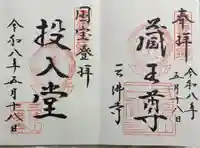 奉拝
令和八年五月十八日
蔵王尊
三佛寺
国宝登拝
投入堂
令和八年五月十八日